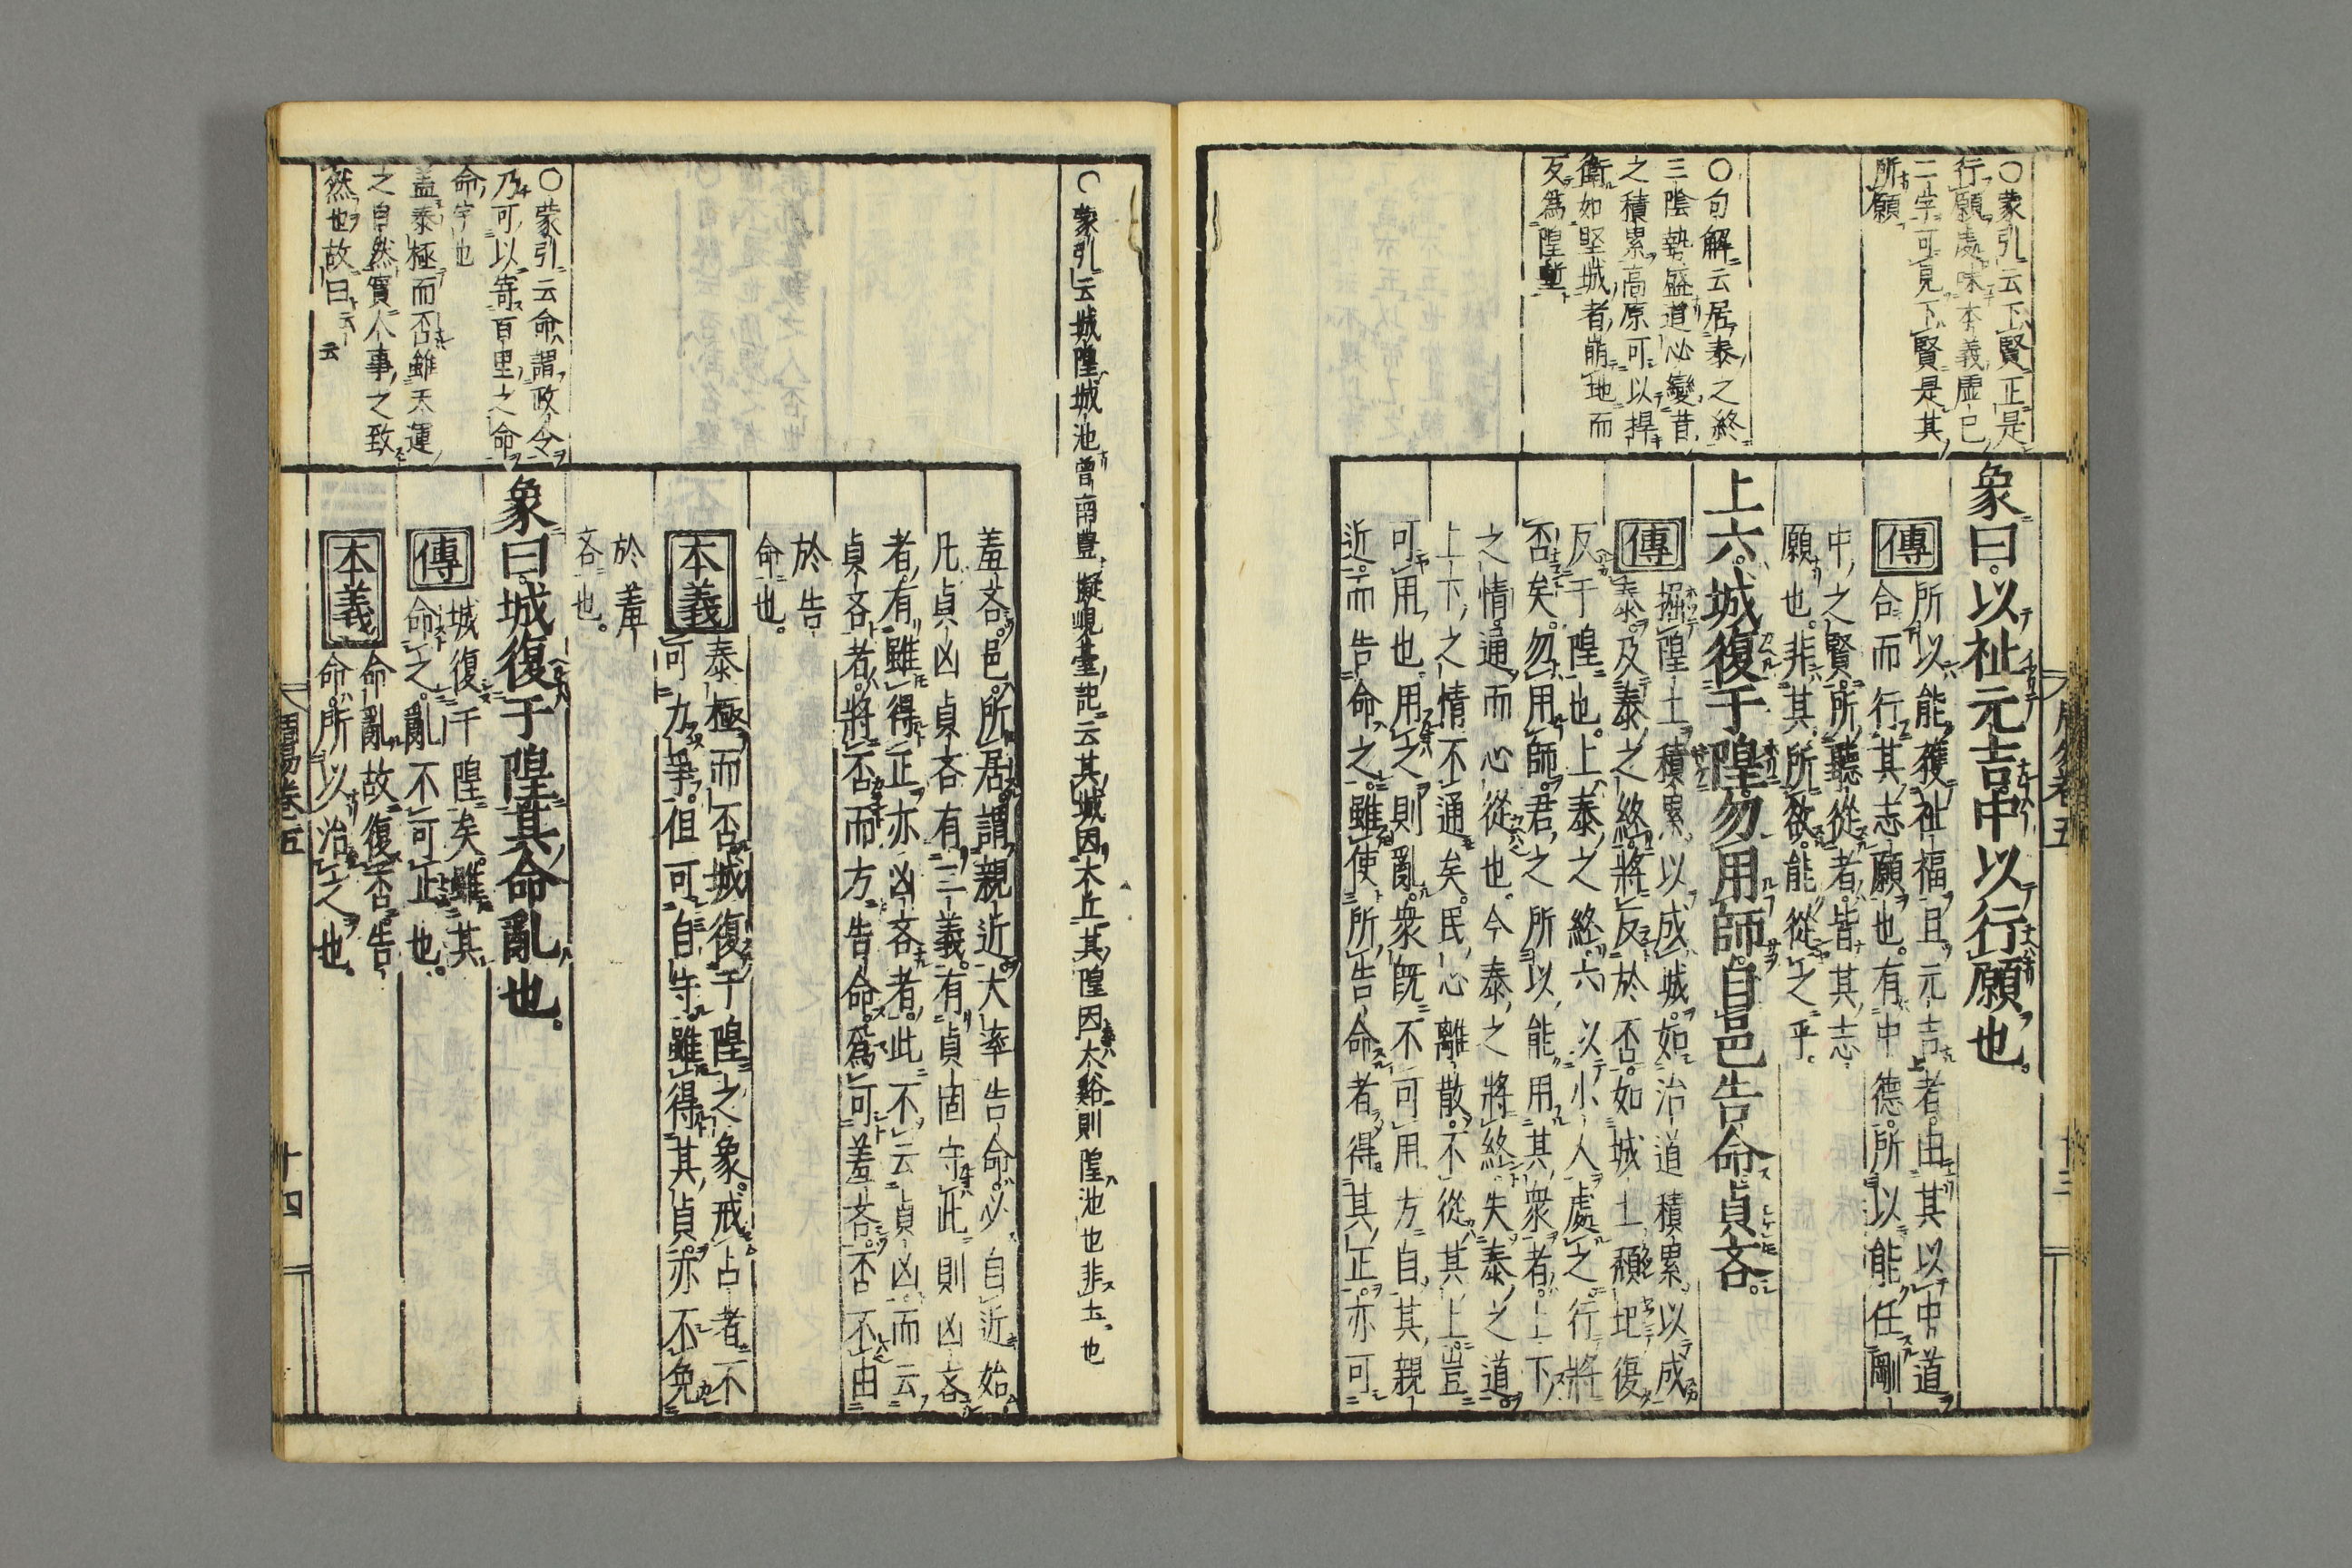 〇蒙引云下賢正是
行願處味本義虛已
二字可見下賢是其
所願
〇句解云居泰之終
三陰勢盛道必變昔
之積累高原可以捍
衛如堅城者崩地而
反為隍塹
象曰。以祉元吉。中以行願也。
傳
所以能獲祉福。且元吉者。由其以中道
合而行其志願也。有中德。所以能任剛
中之賢。所聽從者。皆其志
願也。非其所欲。能從之乎。
上六。城復于隍。勿用師。自邑告命。貞吝。
傳
掘隍土積累以成城。如治道積累以成
泰。及泰之終。將反於否。如城土頹地。復
反于隍也。上。泰之終。六以小人處之。行將
否矣。勿用師。君之所以能用其衆者。上下
之情通而心從也。今泰之將終。失泰之道。
上下之情不通矣。民心離散。不從其上。豈
可用也。用之則亂。衆既不可用。方自其親
近而告命之。雖使所告命者得其正。亦可
周易卷五
十三
〇蒙引云城隍城池曾南豊擬峴臺記云其城因大丘其隍因大谿則隍池也非土也
羞吝。邑。所居。謂親近。大率告命必自近始。
凡貞凶貞吝有二義。有貞固守此則凶吝
者。有雖得正亦凶吝者。此不云貞凶而云
貞吝者。將否而方告命。為可羞吝。否不由
於告
命也。
本義
泰極而否。城復于隍之象。戒占者不
可力爭。但可自守。雖得其貞。亦不免
於羞
吝也。
〇蒙引云命謂政令
乃可以寄百里之命
命字也
蓋泰極而否雖天運
之自然實人事之致
然也故曰云云
象曰。城復于隍。其命亂也。
傳
城復于隍矣。雖其
命之。亂不可正也。
本義
命亂故復否。告
命。所以治之也。
周易卷五
十四